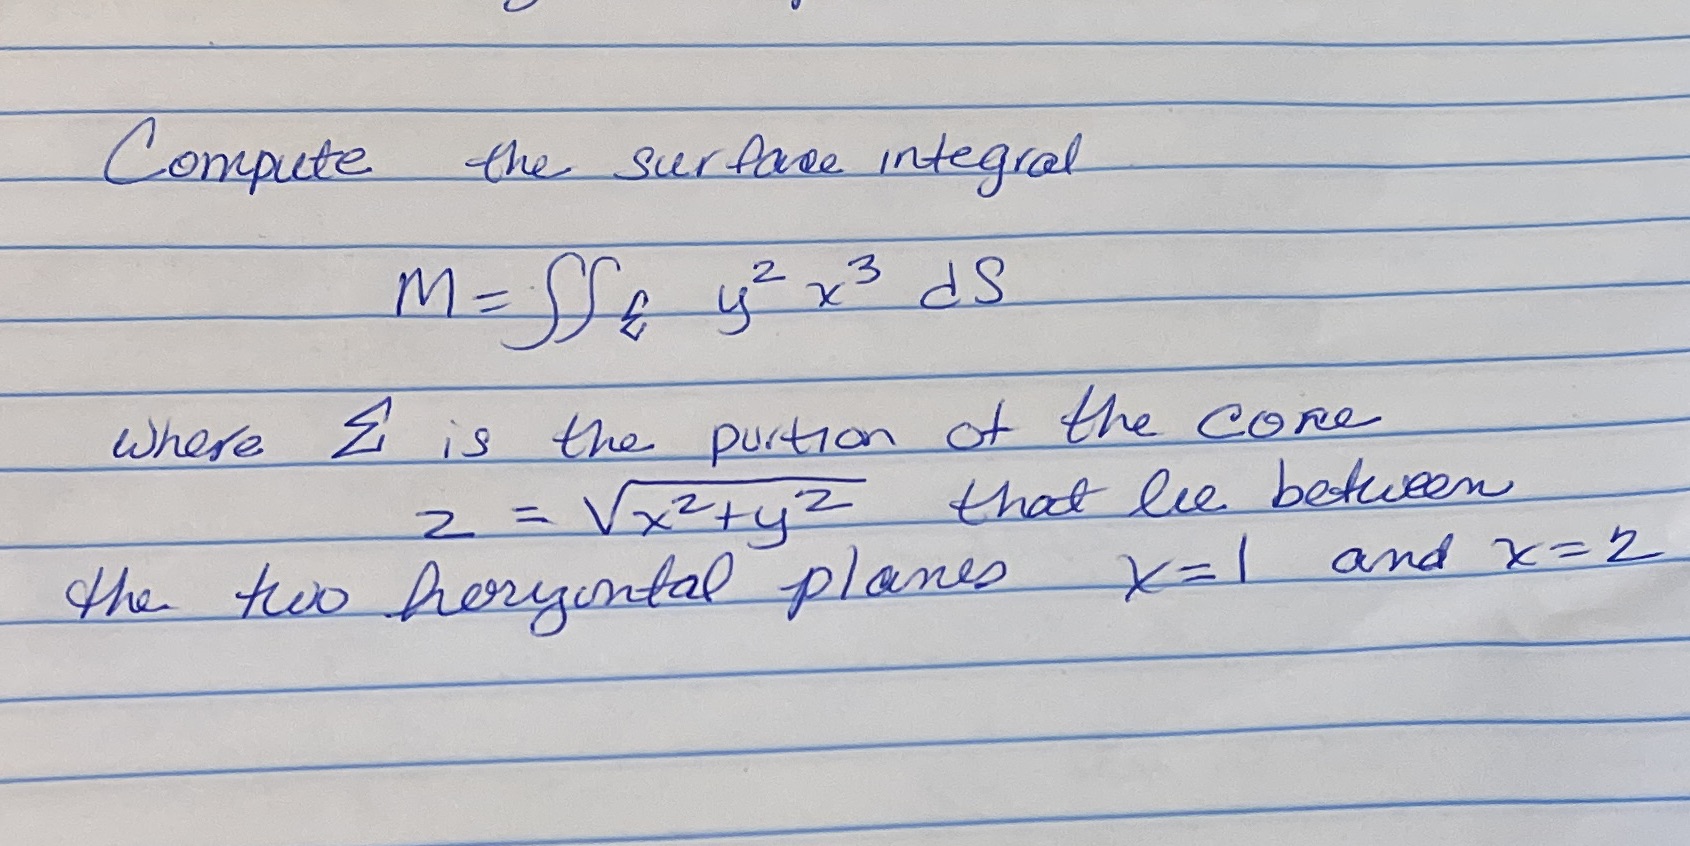 Compute the surface integral
M = ∬_Σ y² x³ dS
where Σ is the portion of the cone
z = √x²+y² that lie between
the two horyzontal planes x=1 and x=2